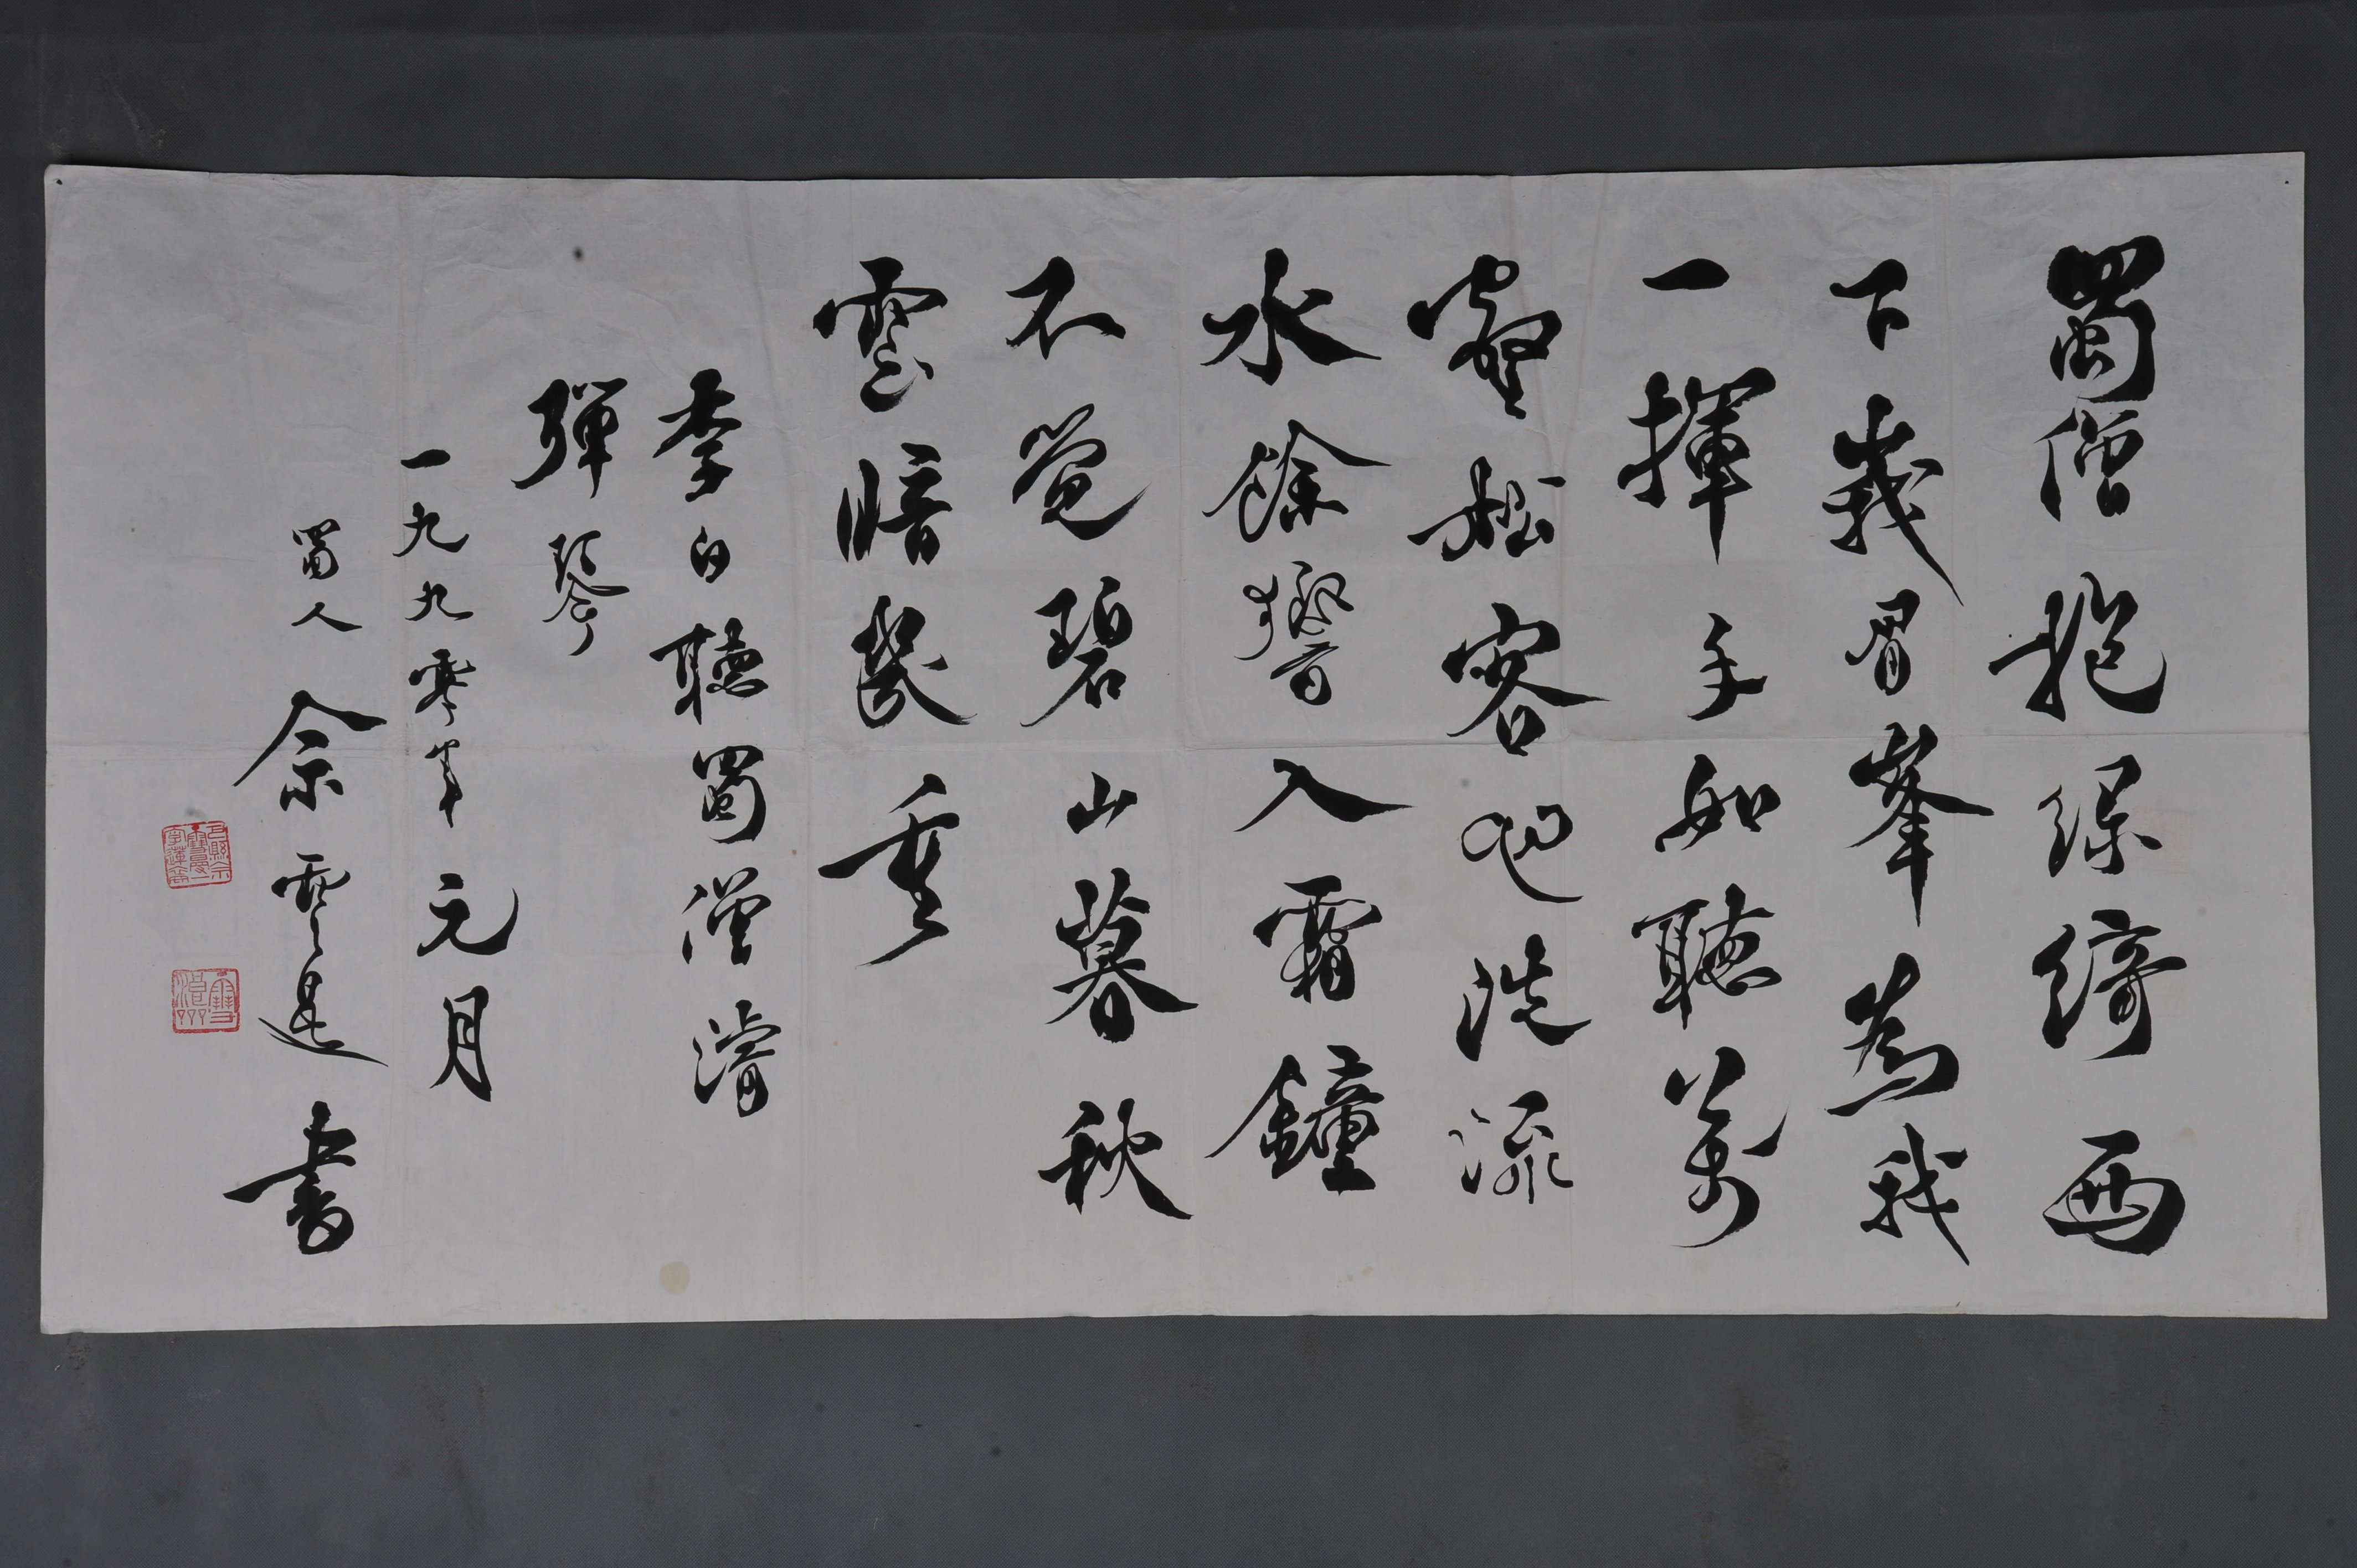 蜀僧抱綠綺西
下峩眉峯為我
一揮手如聽萬
壑松客心洗流
水餘響入霜鐘
不覺碧山暮秋
雲暗幾重
李白聽蜀僧濬
彈琴
一九九零年元月
蜀人佘雪曼書